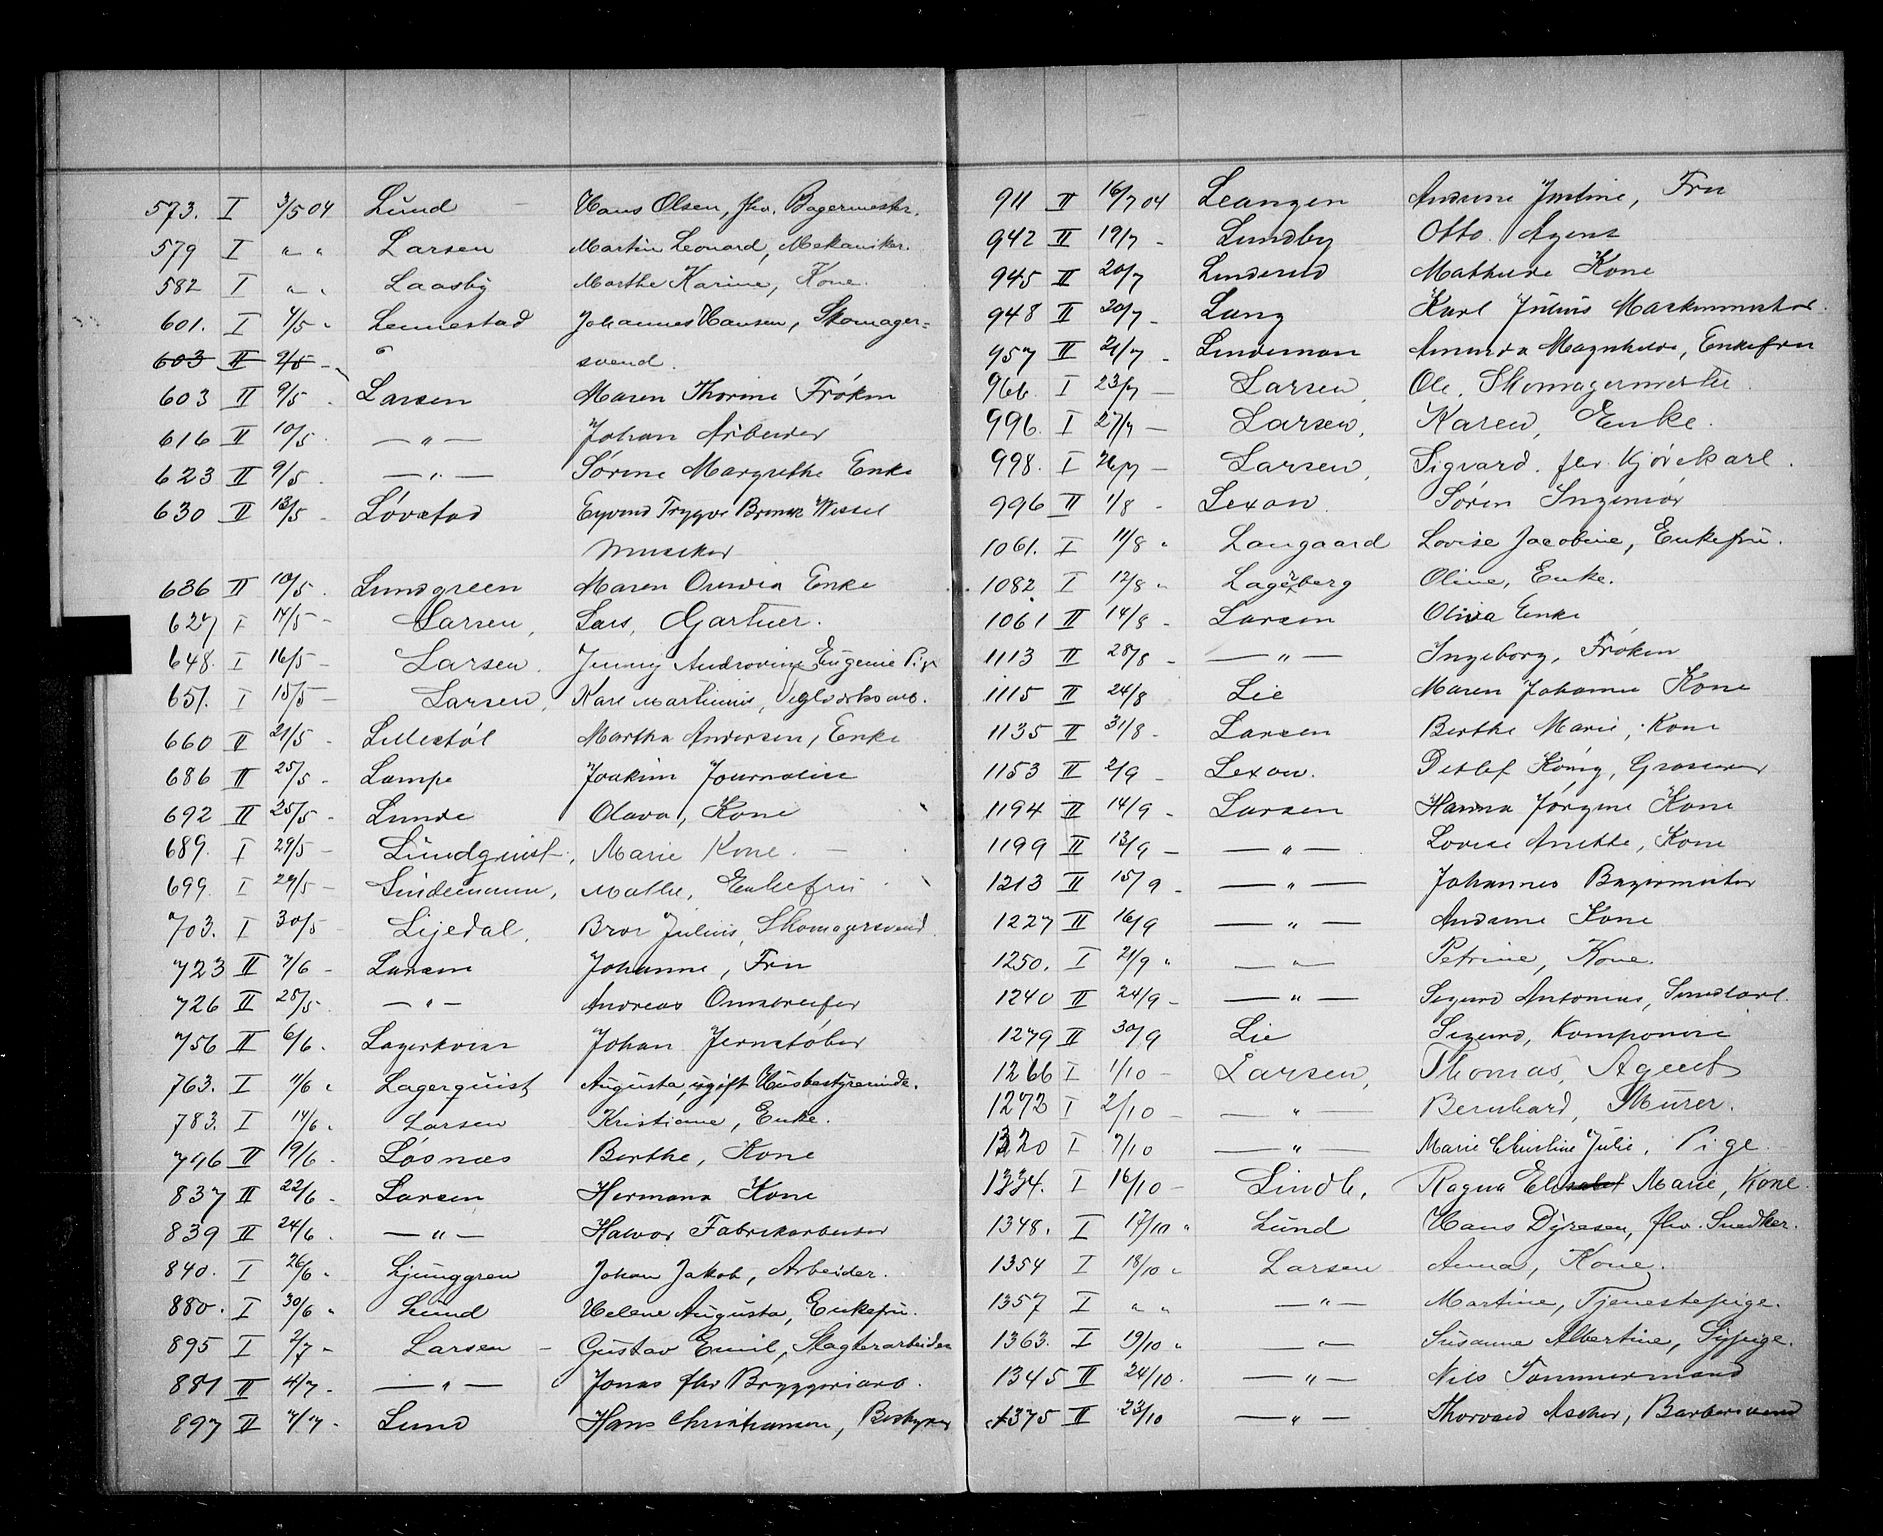 573. I 3/5 04 Lund Hans Olsen, fhv. Bagermester.
579 I " " Larsen Martin Leonard, Mekaniker.
582 I " " Laasby Marthe Karine, Kone.
601. I 4/5 " Lennestad Johannes Hansen, Skomager=
603 II 9/5 - " svend.
603 II 9/5 - Larsen Maren Thorine Frøken
616 II 10/5 - — " — Johan Arbeider
623 II 9/5 - — " — Sørine Margrethe Enke
630 II 13/5 - Løvstad Eyvind Trygve Wessel
Musiker
636 II 10/5 - Lundgreen Maren Enke
627 I 14/5 - Larsen, Lars, Gartner.
648. I 16/5 - Larsen. Jenny Eugenie Pige
651. I 15/5 - Larsen, Karl Martinius,
660 II 21/5 - Lillestøl Martha Andersen, Enke
686 II 25/5 - Lampe Joakim Journalist
692 II 25/5 - Lunde Olava, Kone
689. I 29/5 - Lundquist, Marie Kone. —
699. I 29/5 - Lindemann, Mathe, Enkefru
703. I 30/5 - Lijedal, Bror Julius, Skomagersvend
723 II 7/6 - Larsen Johanne, Fru
726 II 28/5 - — " — Andreas
756 II 6/6 - Lagerkvist Johan Jernstøber
763. I 11/6 " Lagerquist Augusta, ugift Husbestyrerinde.
783. I 14/6 " Larsen Kristiane, Enke.
796 II 19/6 - Løsnæs Berthe, Kone
837 II 22/6 - Larsen Hermana Kone
839 II 24/6 - — " — Halvor Fabrikarbeider
840. I 26/6 " Ljunggren Johan Jakob, Arbeider.
880. I 30/6 " Lund Helene Augusta, Enkefru.
895 I 2/7 " Larsen — Gustav Emil, Slagterarbeider
881 II 4/7 - — " — Jonas fhv Bryggeriarb.
897 II 7/7 - Lund Hans Christiansen, Bestyrer
911 II 16/7 04 Leangen Justine, Fru
942 II 19/7 - Lundby Otto. Agent
945 II 20/7 Linderud Mathilde Kone
948 II 20/7 - Lang Karl Julius Maskinmester.
957 II 21/7 - Lindeman Amunda Magnhilde, Enkefru
966. I 23/7 — Larsen, Ole, Skomagermester
996. I 27/7 — Larsen, Karen, Enke.
998. I 26/7 — Larsen, Sigvard. fhv. Kjørekarl.
996 II 1/8 - Lexow. Sören Ingeniör
1061. I 11/8 " Langaard Lovise Jacobine, Enkefru.
1082. I 12/8 " Lagerberg Oline, Enke.
1061 II 14/8 - Larsen Olivia Enke
1113 II 28/8 - — " — Ingeborg, Frøken
1115 II 24/8 Lie Maren Johanne Kone
1135 II 31/8 - Larsen Berthe Marie, Kone
1153 II 2/9 - Lexow. Detlef König, Grosserer
1194 II 14/9 - Larsen Hanna Jørgine Kone
1199 II 13/9 - — " — Lovise Anette, Kone
1213 II 15/9 - — " — Johannes Bagermester
1227 II 16/9 — " — Andrine Kone
1250. I 21/9 " — " — Petrine, Kone.
1240 II 24/9 - — " — Sigurd Antonius,
1279 II 30/9 Lie Sigurd, Komponist
1266 I 1/10 - Larsen, Thomas, Agent
1272 I 2/10 - — " — Bernhard, Murer.
1320 I 7/10 — " — Marie Christine Julie, Pige.
1334. I 16/10 - Lindh, Ragna Elisabet Marie, Kone.
1348. I 17/10 " Lund Hans Dyresen, fhv. Snedker.
1354 I 18/10 " Larsen Anna, Kone.
1357 I " " — " — Martine, Tjenestepige.
1363. I 19/10 " — " — Susanne Albertine, Sypige.
1345 II 24/10. — " — Nils Tømmermand
1375 II 23/10 — " — Thorvald Ascher, Barbersvend